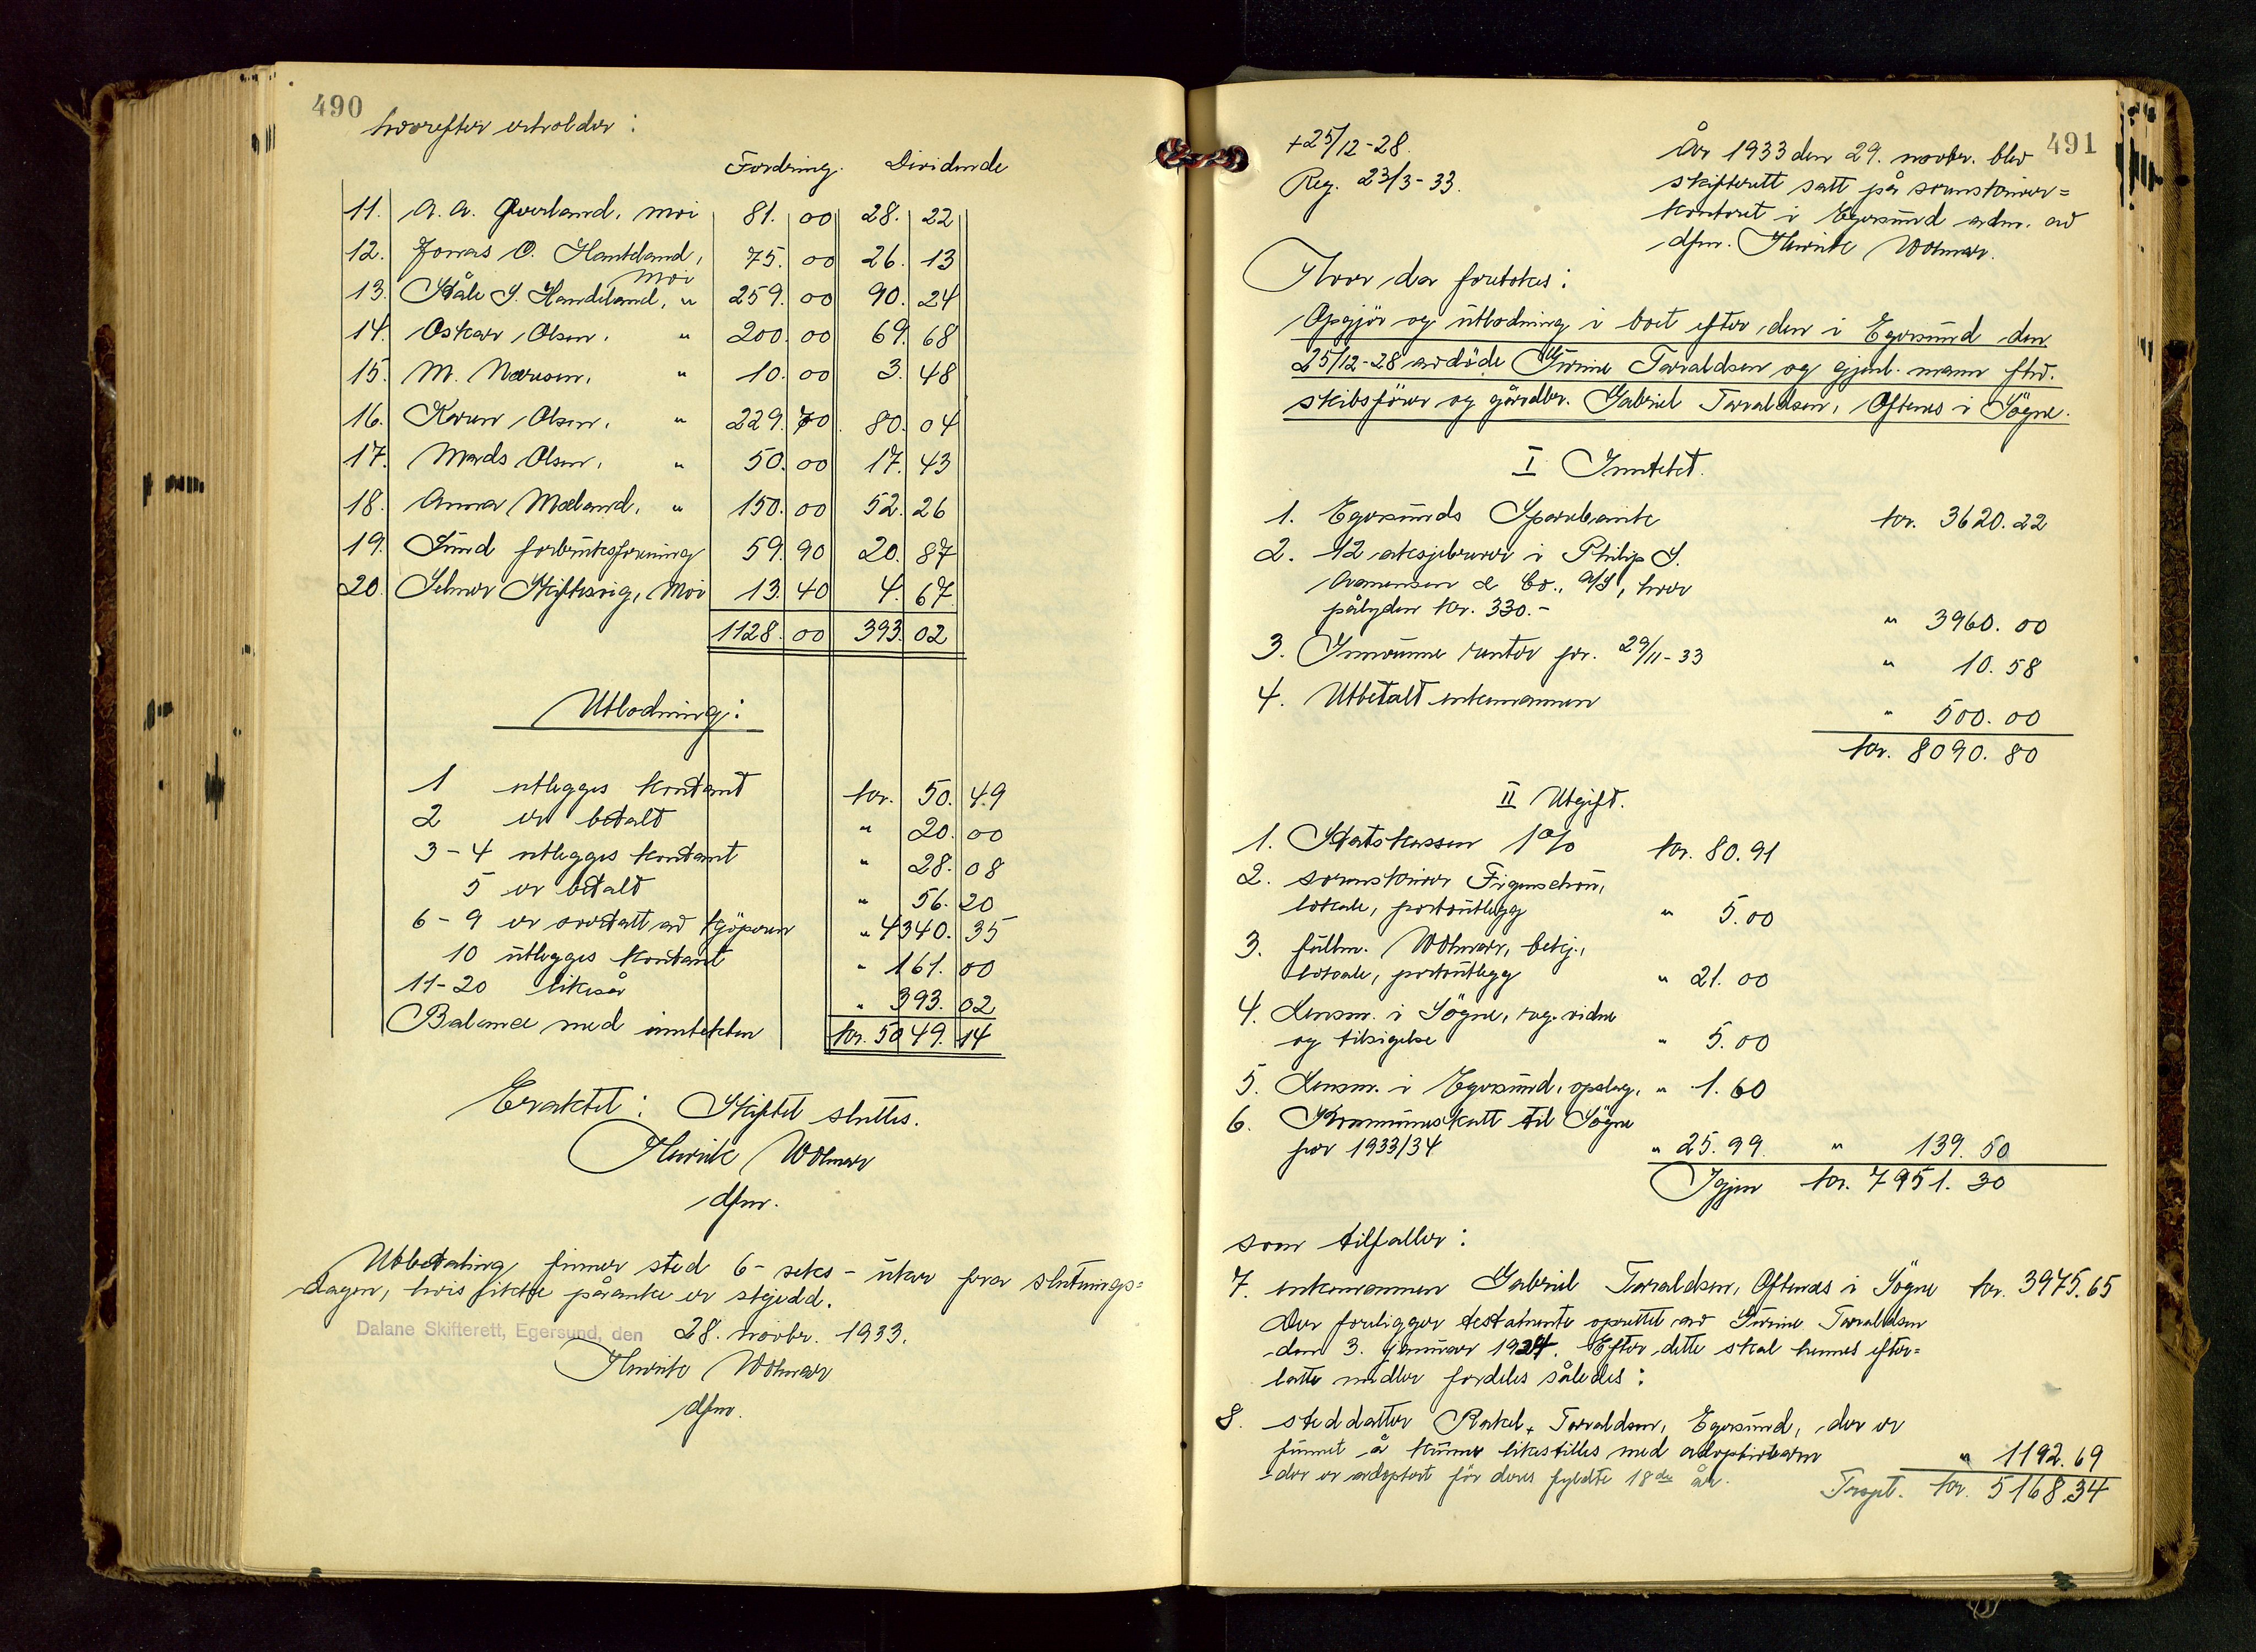 490
hvorefter erholder:
Fordring. Dividende
11. A. A. Øverland, Moi 81. 00 28. 22
12. Jonas O. Hanteland, Moi 75. 00 26. 13
13. Ståle S. Handeland, " 259. 00 90. 24
14. Oskar Olsen, " 200. 00 69. 68
15. M. Maresen, " 10. 00 3. 48
16. Karen Olsen, " 229. 70 80. 04
17. Mards Olsen, " 50. 00 17. 43
18. Anna Mæland, " 150. 00 52. 26
19. Lund forbruksforening 59. 90 20. 87
20. Selmer Skiftesvig, Moi 13. 40 4. 67
1128. 00 393. 02
Utlodning:
1 utlegges kontant kr. 50. 49
2 er betalt " 20. 00
3-4 utlegges kontant " 28. 08
5 er betalt " 56. 20
6-9 er overtatt av kjöperen " 4340. 35
10 utlegges kontant " 161. 00
11-20 likeså " 393. 02
Balance med inntekten kr. 5049. 14
Eraktet: Skiftet sluttes.
Henrik Wolmar
dfm.
Utbetaling finner sted 6 - seks - uker fra slutnings=
dagen, hvis ikke påanke er skjedd.
Dalane Skifterett, Egersund, den 28. novbr. 1933.
Henrik Wolmar
dfm.
491
+25/12-28.
Reg. 23/3-33.
År 1933 den 29. novbr. blev
skifterett satt på sorenskriver=
kontoret i Egersund adm. av
dfm. Henrik Wolmar.
Hvor da foretokes:
Opgjör og utlodning i boet efter den i Egersund den
25/12-28 avdöde Gurine Tarraldsen og gjenl. mann fhv.
skibsförer og gårdbr. Gabriel Tarraldsen, Oftenes i Sögne.
I Inntekt.
1. Egersunds Sparebank kr. 3620.22
2. 12 aksjebrever i Philip S.
Aamensen & Co., A/S, hver
pålyden kr. 330.- " 3960.00
3. Innvunne renter pr. 29/11-33 " 10.58
4. Utbetalt enkemannen " 500.00
kr. 8090.80
II Utgift.
1. Statskassen 1% kr. 80.91
2. sorenskriver Figenschou,
lokale, portoutlegg " 5.00
3. fullm. Wolmar, bekj.,
lokale, portoutlegg " 21.00
4. Lensm. i Sögne, reg. vidne
og tilsigelse " 5.00
5. Lensm. i Egersund, opslag, " 1.60
6. Kommuneskatt til Sögne
for 1933/34 " 25.99 " 139.50
Igjen kr. 7951.30
som tilfaller:
7. enkemannen Gabriel Tarraldsen, Oftenes i Sögne kr. 3975.65
Der foreligger testamente oprettet av Gurine Tarraldsen
den 3. januar 1924. Efter dette skal hennes efter=
latte midler fordeles således:
8. steddatter Rakel Tarraldsen, Egersund, der er
funnet å kunne likestilles med adoptivbarn
der er adoptert för deres fyldte 18de år. " 1192.69
Trspt. kr. 5168.34